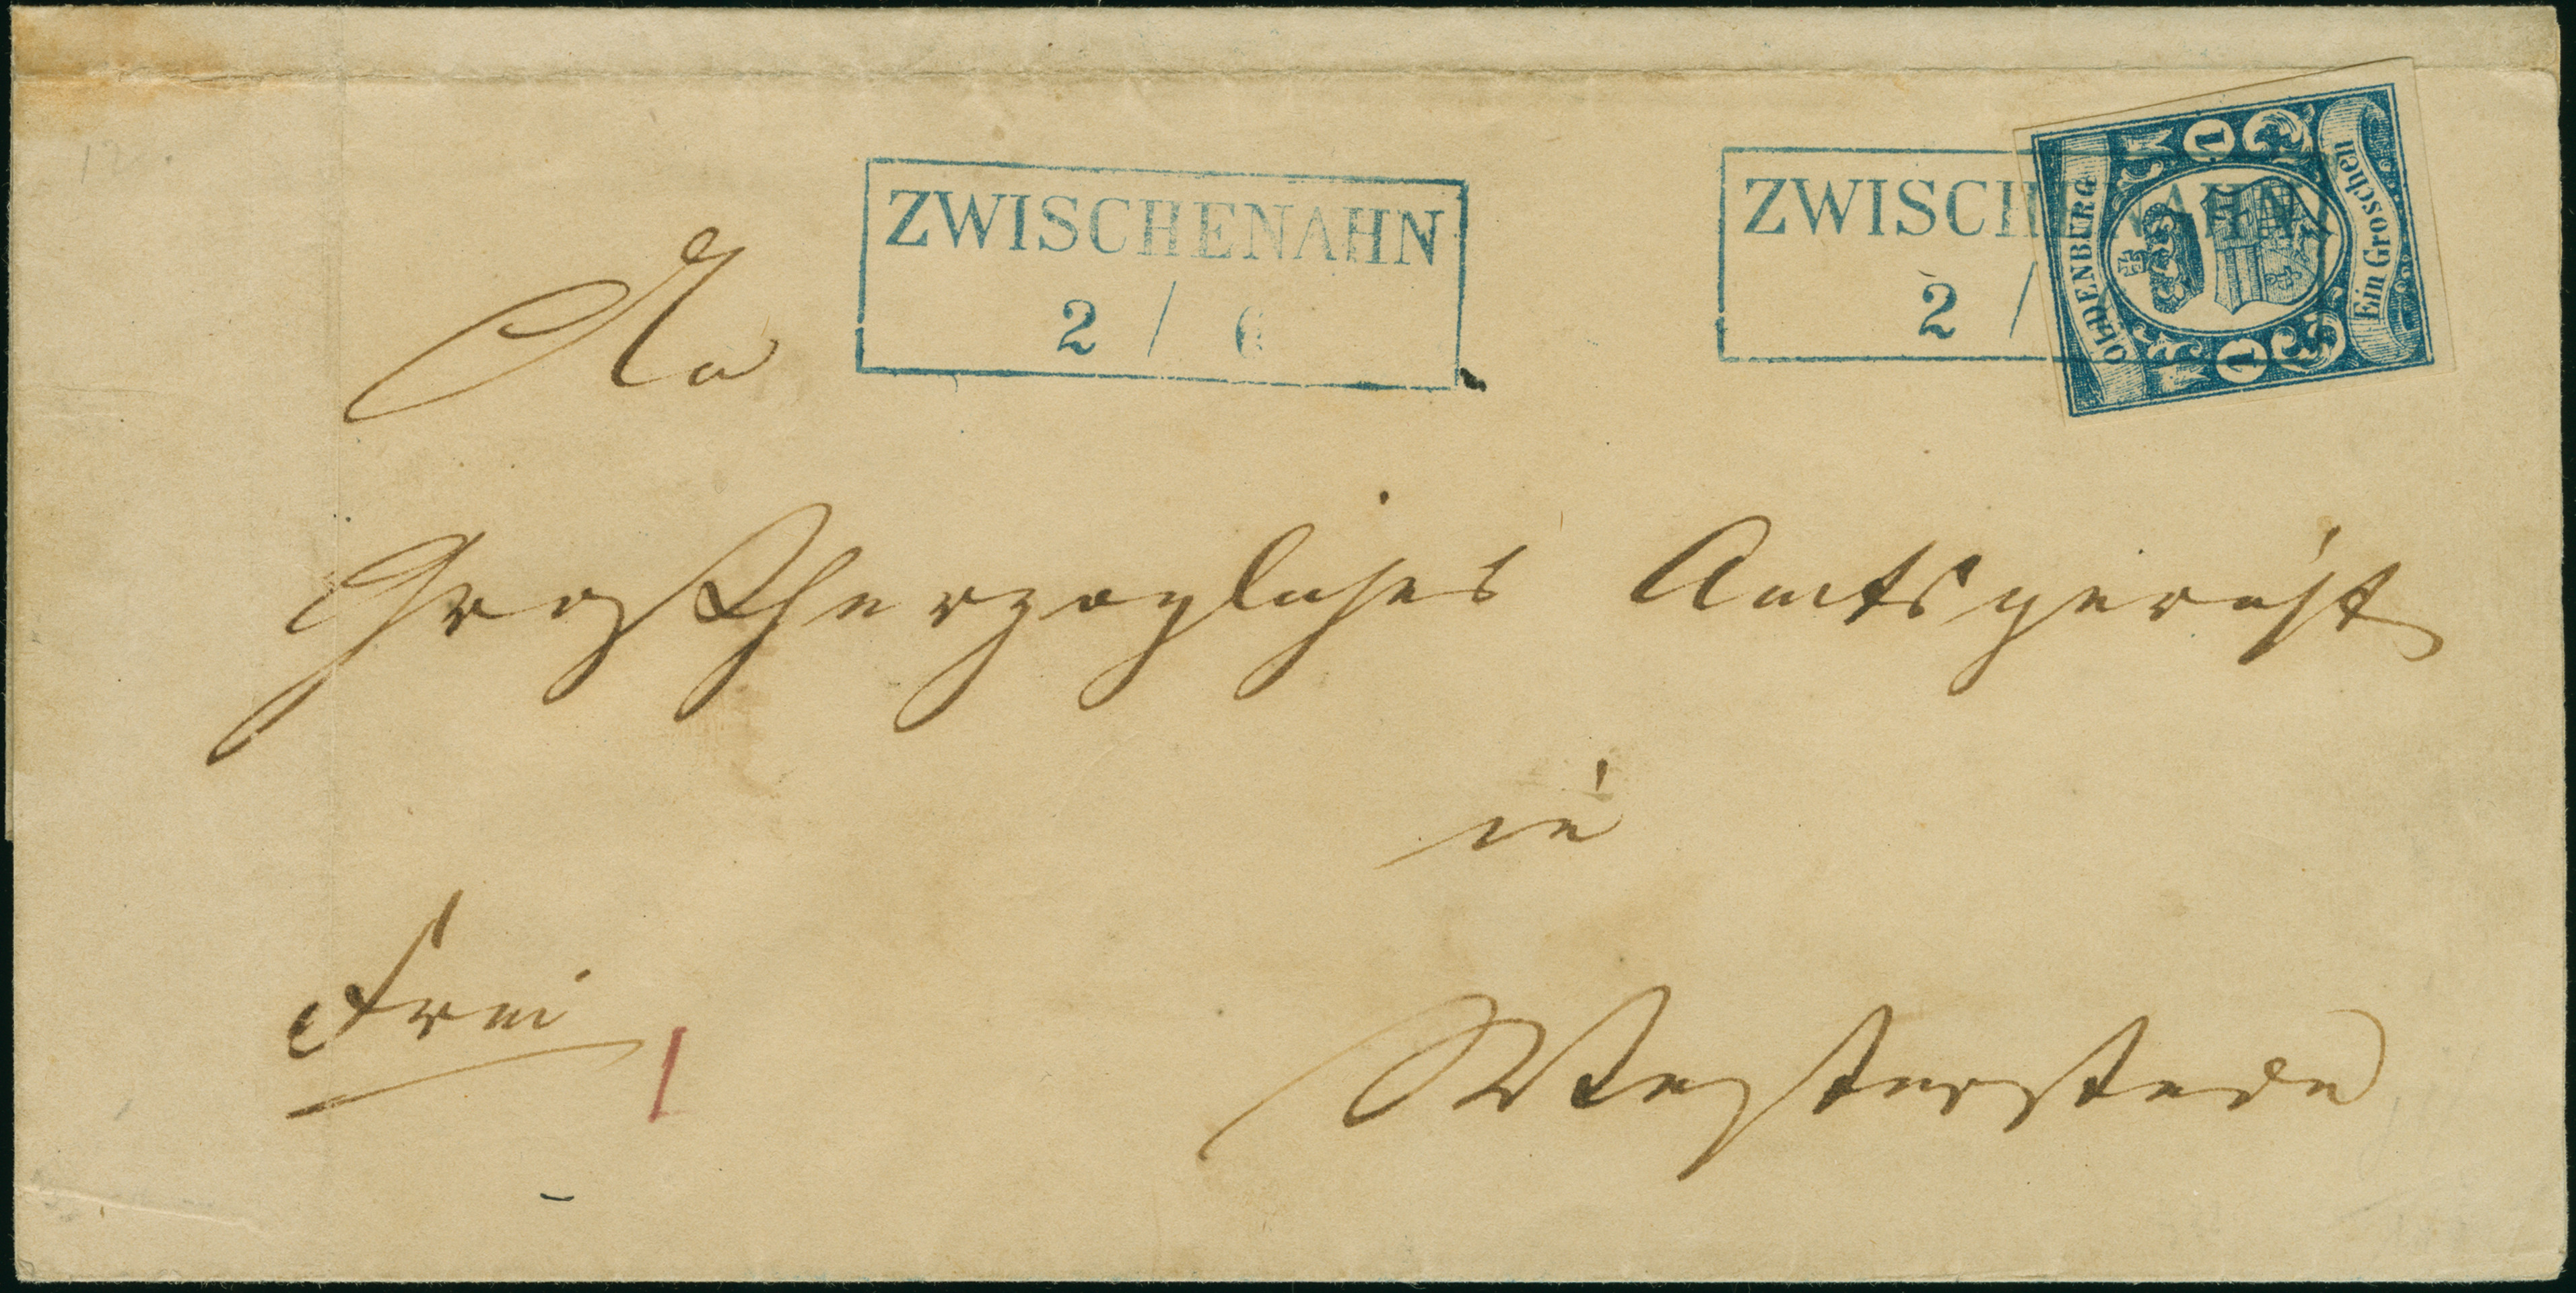 ZWISCHENAHN
2 / 6
ZWISCHENAHN
2 /
OLDENBURG
1
1
Ein Groschen
An
Großherzogliches Amtsgericht
in
frei
1
Westerstede